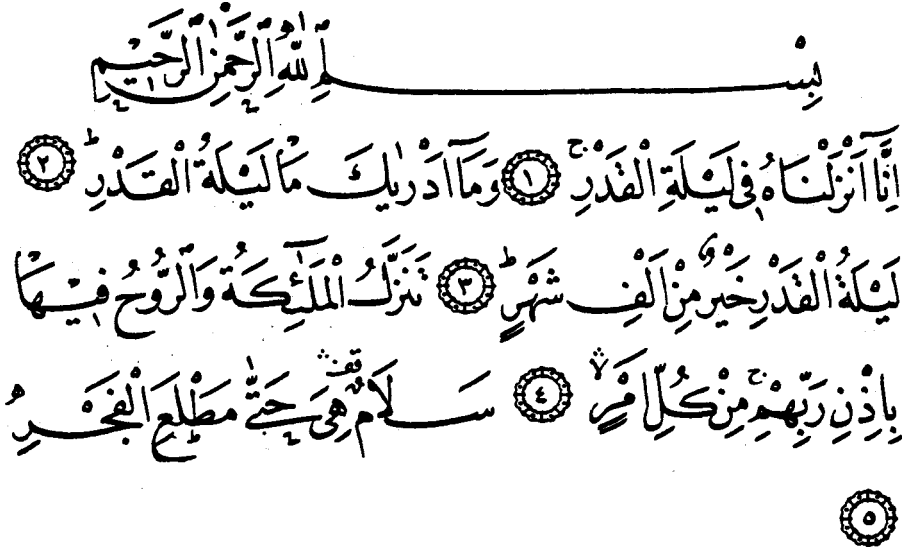 بِسْمِ ٱللّٰهِ ٱلرَّحْمٰنِ ٱلرَّحِيْمِ
اِنَّآ اَنْزَلْنَاهُ فِيْ لَيْلَةِ الْقَدْرِ ۚۖ ١ وَمَآ اَدْرٰىكَ مَا لَيْلَةُ الْقَدْرِ ؕ ٢
لَيْلَةُ الْقَدْرِ خَيْرٌ مِنْ اَلْفِ شَهْرٍ ؕ ٣ تَنَزَّلُ الْمَلٰٓئِكَةُ وَالرُّوْحُ فِيْهَا
بِاِذْنِ رَبِّهِمْ ۚ مِنْ كُلِّ اَمْرٍ ۛ ٤ سَلَامٌ ۛ هِيَ حَتّٰى مَطْلَعِ الْفَجْرِ
٥